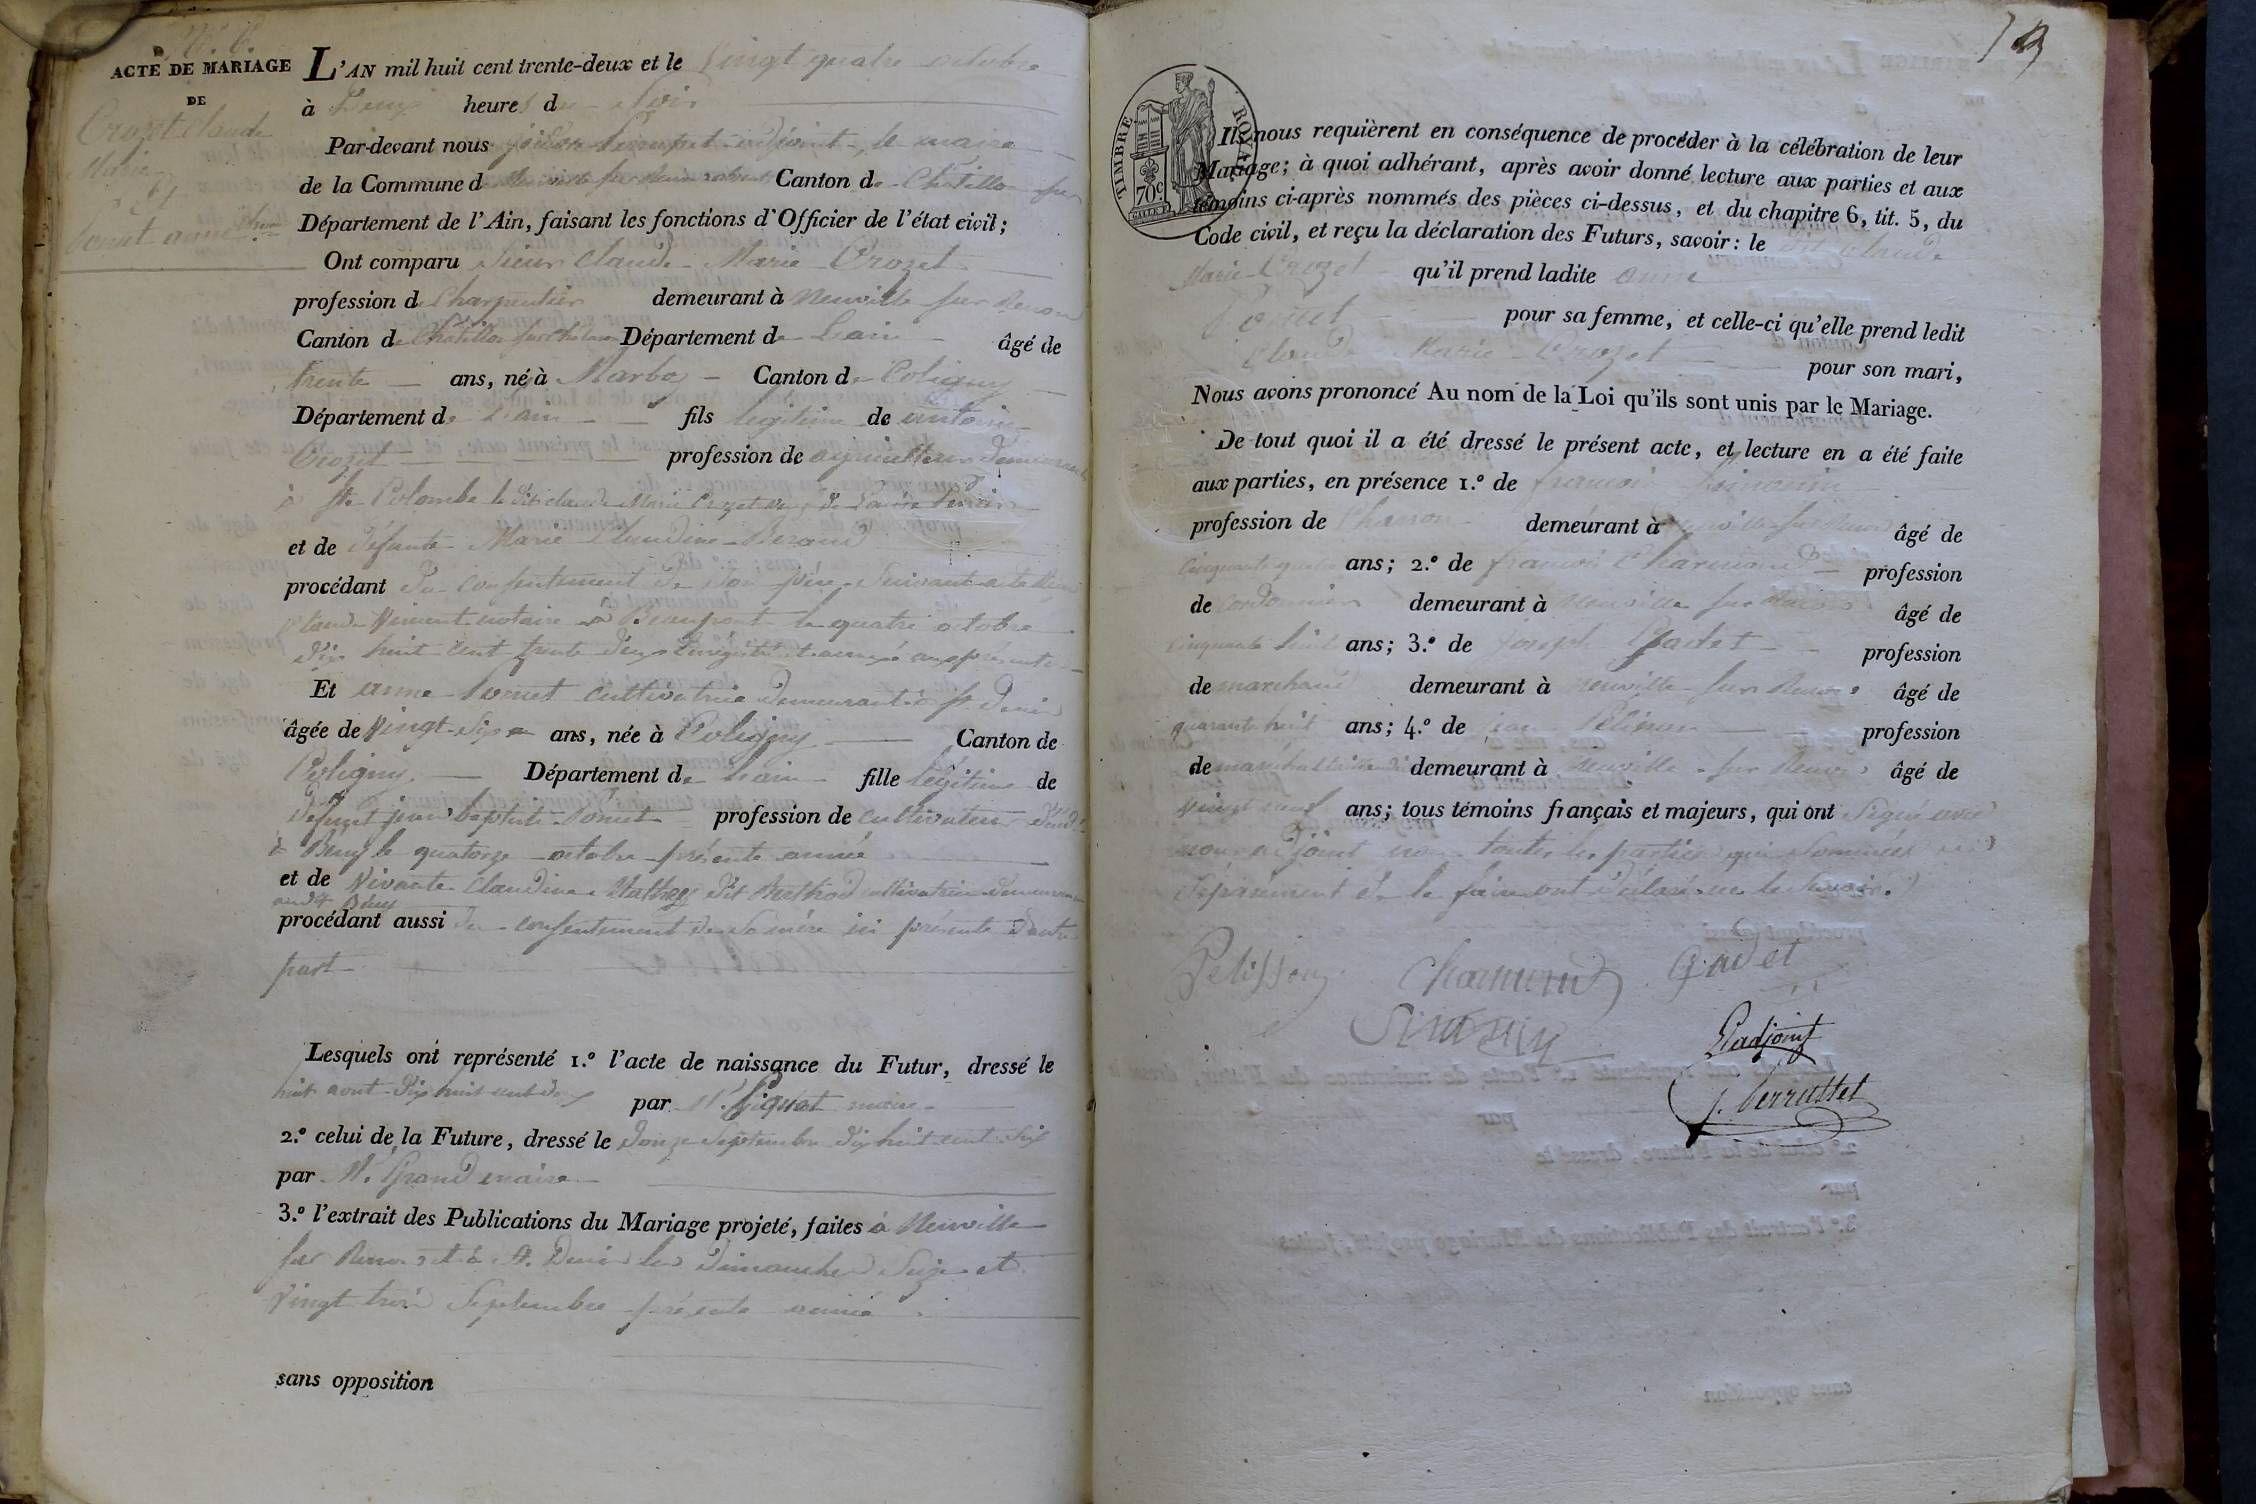 N.° 6.
ACTE DE MARIAGE
DE
Crozet Claude
Marie
et
anne
L'AN mil huit cent trente-deux et le vingt quatre octobre
à Deux heures du Soir
Par-devant nous adjoint, le maire
de la Commune de Neuville sur Renon Canton de Chatillon sur
Département de l'Ain, faisant les fonctions d'Officier de l'état civil;
Ont comparu Sieur Claude Marie Crozet
profession de Charpentier demeurant à Neuville sur Renon
Canton de Chatillon sur Chalaronne Département de Lain âgé de
trente ans, né à Marboz Canton de Coligny
Département de Lain fils légitime de antoine
Crozet profession de agriculteur demeurant
à Ste Colombe le dit Claude Marie Crozet
et de défunte Marie Claudine
procédant du consentement de son père Suivant acte
Vincent notaire à Beaupont le quatre octobre
dix huit cent trente deux enregistré
Et anne cultivatrice demeurant à St Denis
âgée de Vingt-Six ans, née à Coligny Canton de
Coligny Département de Lain fille légitime de
défunt jean baptiste profession de cultivateur
à Beny le quatorze octobre présente année
et de vivante Claudine Mathey dit Berthod cultivatrice demeurant
audit Beny
procédant aussi du consentement de Sa mère ici présente d'autre
part
Lesquels ont représenté 1.° l'acte de naissance du Futur, dressé le
huit aout dix huit cent deux par M. maire
2.° celui de la Future, dressé le douze Septembre dix huit cent Six
par M. Grand maire
3.° l'extrait des Publications du Mariage projeté, faites à Neuville
sur Renon et à St. Denis les Dimanches Seize et
vingt trois Septembre présente année
sans opposition
TIMBRE ROYAL
70 c.
Ils nous requièrent en conséquence de procéder à la célébration de leur
Mariage; à quoi adhérant, après avoir donné lecture aux parties et aux
témoins ci-après nommés des pièces ci-dessus, et du chapitre 6, tit. 5, du
Code civil, et reçu la déclaration des Futurs, savoir: le dit Claude
Marie Crozet qu'il prend ladite anne
pour sa femme, et celle-ci qu'elle prend ledit
Claude Marie Crozet pour son mari,
Nous avons prononcé Au nom de la Loi qu'ils sont unis par le Mariage.
De tout quoi il a été dressé le présent acte, et lecture en a été faite
aux parties, en présence 1.° de francois
profession de Charron demeurant à Neuville sur Renon âgé de
Cinquante quatre ans; 2.° de francois Charmond profession
de Cordonnier demeurant à Neuville sur Renon âgé de
cinquante huit ans; 3.° de Joseph Gadet profession
de marchand demeurant à neuville sur Renon âgé de
quarante huit ans; 4.° de jean profession
de marechal demeurant à Neuville sur Renon âgé de
vingt neuf ans; tous témoins français et majeurs, qui ont Signé avec
nous adjoint non toutes les parties qui Sommées
Séparément de le faire ont déclaré ne le Savoir.
Pelisson Charmond Gadet
L'adjoint